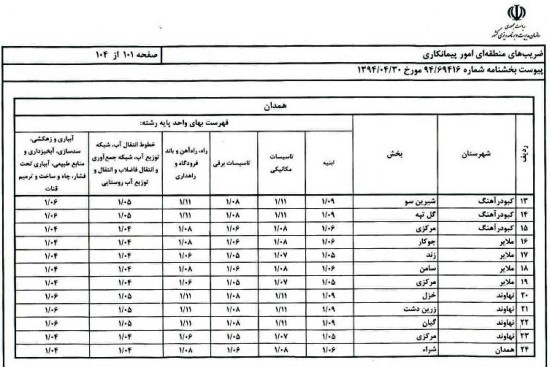 ریاست جمهوری
سازمان مدیریت و برنامه‌ریزی کشور
ضریب‌های منطقه‌ای امور پیمانکاری
صفحه ۱۰۱ از ۱۰۴
پیوست بخشنامه شماره ۹۴/۶۹۴۱۶ مورخ ۱۳۹۴/۰۴/۳۰
همدان
ردیف شهرستان بخش فهرست بهای واحد پایه رشته:
ابنیه
تاسیسات مکانیکی
تاسیسات برقی
راه، راه‌آهن و باند فرودگاه و راهداری
خطوط انتقال آب، شبکه توزیع آب، شبکه جمع‌آوری و انتقال فاضلاب و انتقال و توزیع آب روستایی
آبیاری و زهکشی، سدسازی، آبخیزداری و منابع طبیعی، آبیاری تحت فشار، چاه و ساخت و ترمیم قنات
۱۳ کبودرآهنگ شیرین سو ۱/۰۹ ۱/۱۱ ۱/۰۸ ۱/۱۱ ۱/۰۵ ۱/۰۶
۱۴ کبودرآهنگ گل تپه ۱/۰۹ ۱/۱۱ ۱/۰۸ ۱/۱۱ ۱/۰۵ ۱/۰۶
۱۵ کبودرآهنگ مرکزی ۱/۰۶ ۱/۰۸ ۱/۰۶ ۱/۰۸ ۱/۰۴ ۱/۰۴
۱۶ ملایر جوکار ۱/۰۶ ۱/۰۸ ۱/۰۶ ۱/۰۸ ۱/۰۴ ۱/۰۴
۱۷ ملایر زند ۱/۰۵ ۱/۰۷ ۱/۰۵ ۱/۰۶ ۱/۰۴ ۱/۰۴
۱۸ ملایر سامن ۱/۰۶ ۱/۰۸ ۱/۰۶ ۱/۰۸ ۱/۰۴ ۱/۰۴
۱۹ ملایر مرکزی ۱/۰۵ ۱/۰۷ ۱/۰۵ ۱/۰۶ ۱/۰۴ ۱/۰۴
۲۰ نهاوند خزل ۱/۰۹ ۱/۱۱ ۱/۰۸ ۱/۱۱ ۱/۰۵ ۱/۰۶
۲۱ نهاوند زرین دشت ۱/۰۹ ۱/۱۱ ۱/۰۸ ۱/۱۱ ۱/۰۵ ۱/۰۶
۲۲ نهاوند گیان ۱/۰۹ ۱/۱۱ ۱/۰۸ ۱/۱۱ ۱/۰۵ ۱/۰۶
۲۳ نهاوند مرکزی ۱/۰۵ ۱/۰۷ ۱/۰۵ ۱/۰۶ ۱/۰۴ ۱/۰۴
۲۴ همدان شراء ۱/۰۶ ۱/۰۸ ۱/۰۶ ۱/۰۸ ۱/۰۴ ۱/۰۴